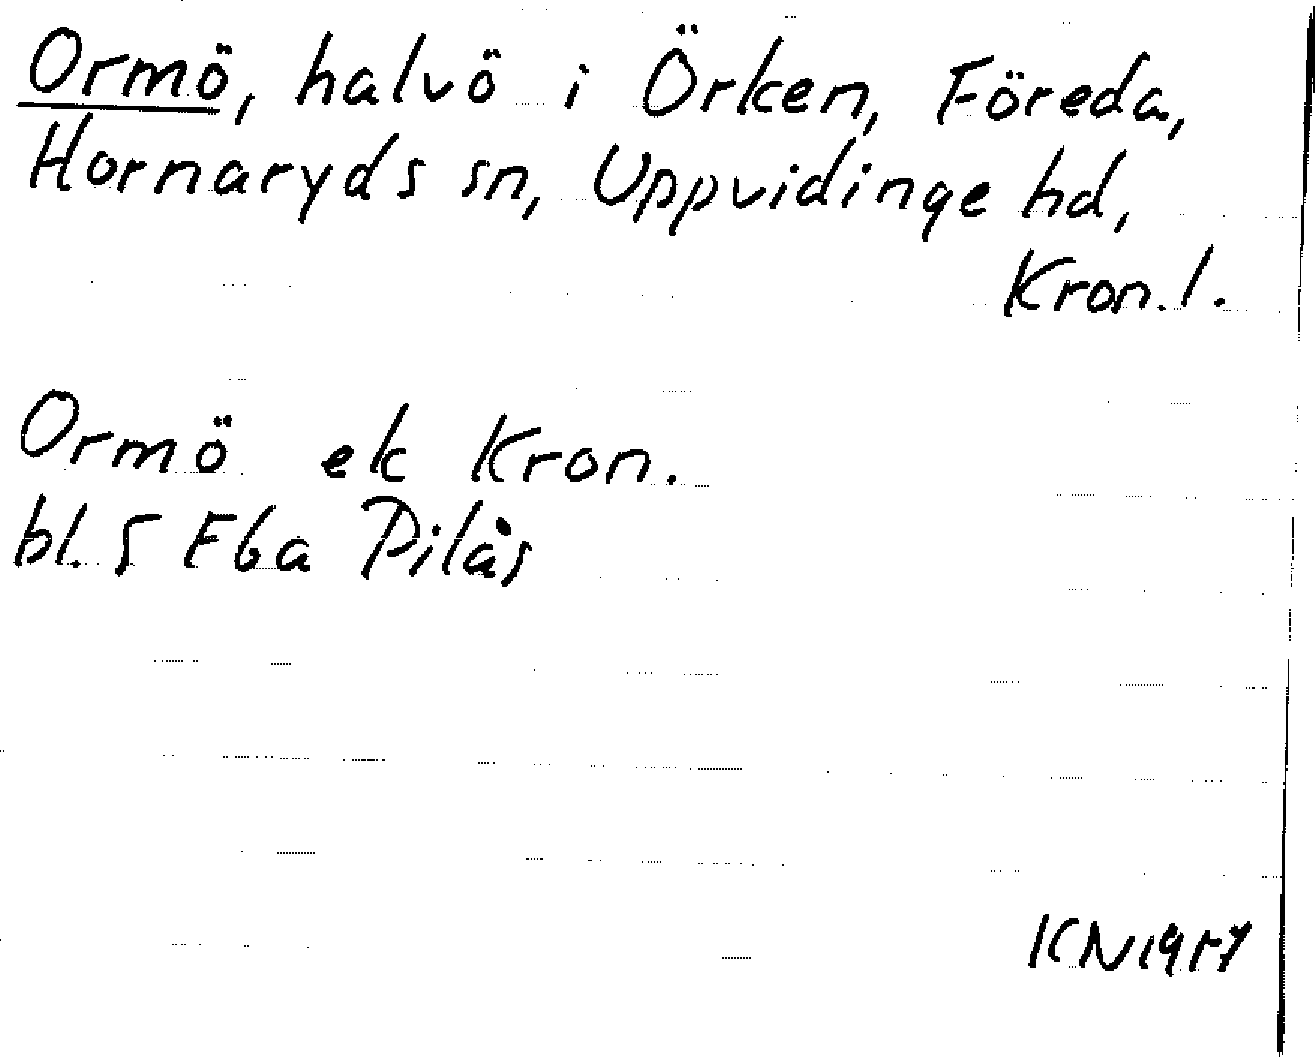 Ormö, halvö i Örken, Föreda,
Hornaryds sn, Uppvidinge hd,
Kron. l.
Ormö ek Kron.
bl. 5 Eba Pilås
KN 1957